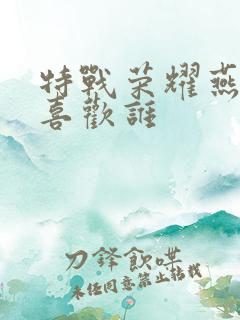 特戰荣耀燕
喜歡誰
刀鋒飲哄
未經同意禁止轉載